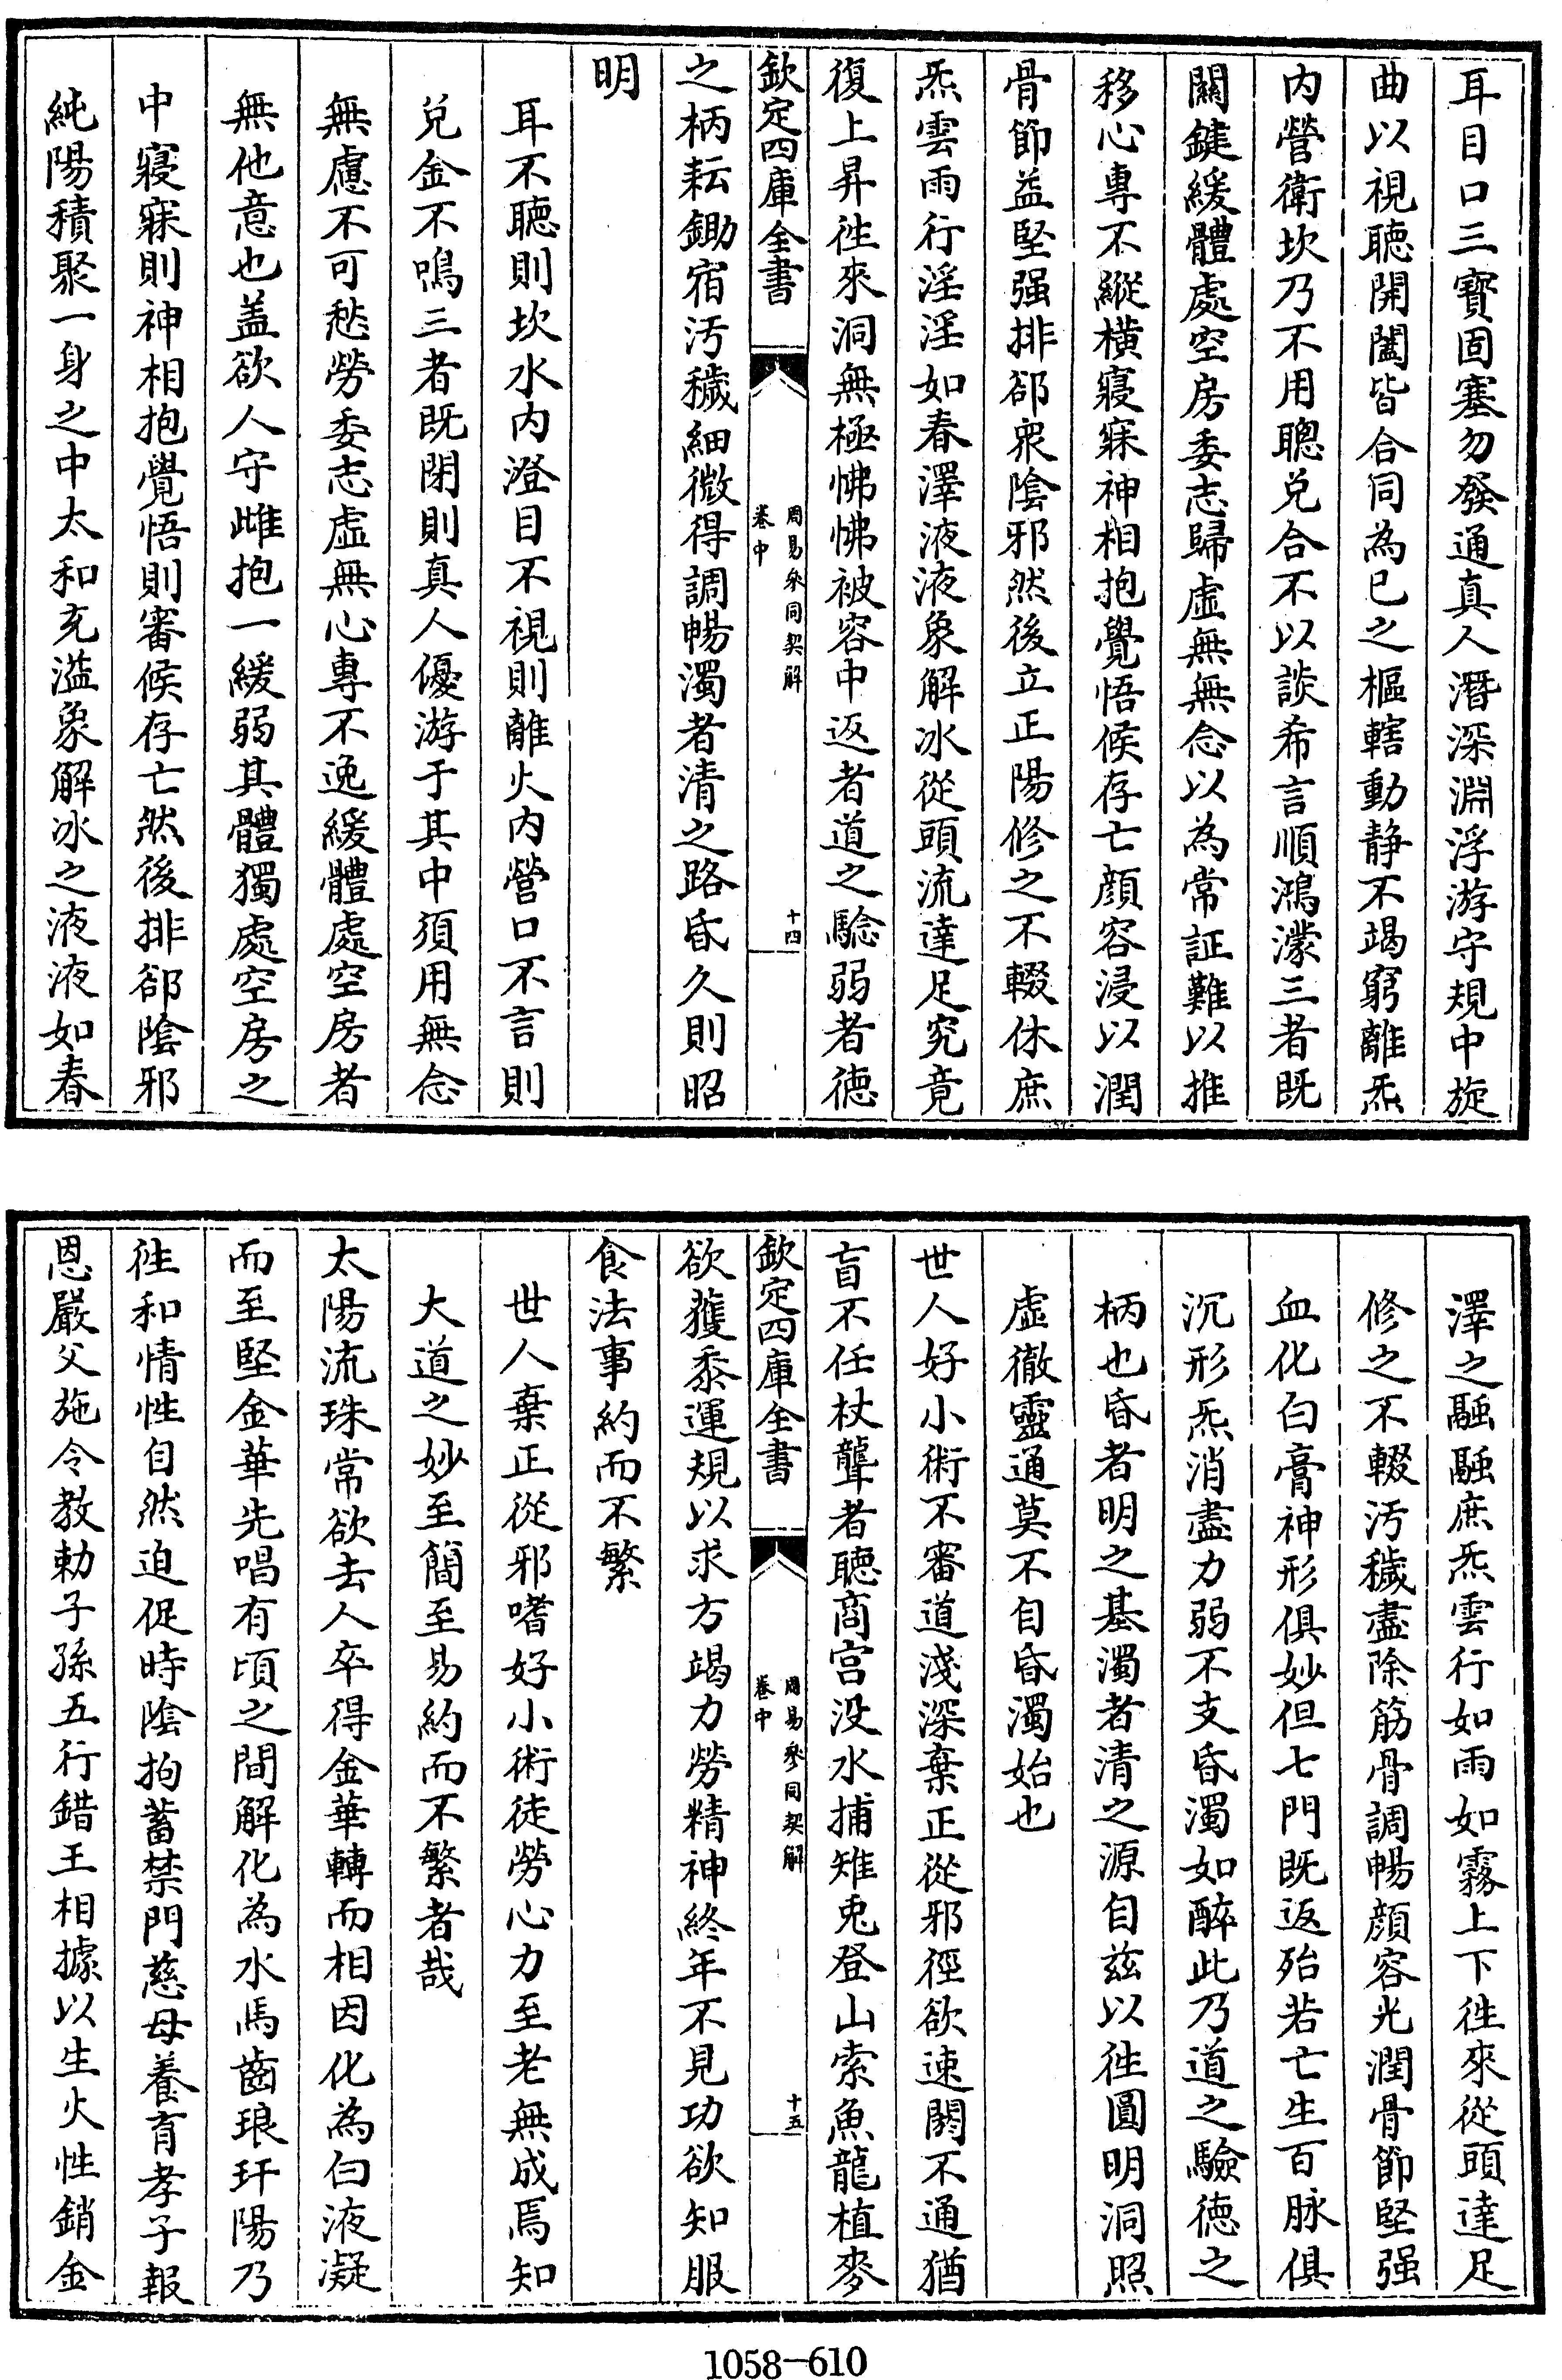 耳目口三寶固塞勿發通真人潛深淵浮游守規中旋
曲以視聽開闔皆合同為已之樞轄動静不竭窮離炁
内營衛坎乃不用聰兑合不以談希言順鴻濛三者既
關鍵緩體處空房委志歸虛無無念以為常証難以推
移心專不縱横寢寐神相抱覺悟候存亡顔容浸以潤
骨節益堅强排郤衆陰邪然後立正陽修之不輟休庶
炁雲雨行淫淫如春澤液液象解冰從頭流達足究竟
復上昇徃來洞無極怫怫被容中返者道之驗弱者德
欽定四庫全書
周易參同契解
卷中
十四
之柄耘鋤宿汚穢細微得調暢濁者清之路昏久則昭
明
耳不聽則坎水内澄目不視則離火内營口不言則
兑金不鳴三者既閉則真人優游于其中須用無念
無慮不可愁勞委志虛無心專不逸緩體處空房者
無他意也盖欲人守雌抱一緩弱其體獨處空房之
中寢寐則神相抱覺悟則審候存亡然後排郤陰邪
純陽積聚一身之中太和充溢象解冰之液液如春
澤之融融庶炁雲行如雨如霧上下徃來從頭達足
修之不輟汚穢盡除筋骨調暢顔容光潤骨節堅强
血化白膏神形俱妙但七門既返殆若亡生百脉俱
沉形炁消盡力弱不支昏濁如醉此乃道之驗德之
柄也昏者明之基濁者清之源自兹以徃圓明洞照
虛徹靈通莫不自昏濁始也
世人好小術不審道淺深棄正從邪徑欲速閼不通猶
盲不任杖聾者聽商宫没水捕雉兎登山索魚龍植麥
欽定四庫全書
周易參同契解
卷中
十五
欲獲黍運規以求方竭力勞精神終年不見功欲知服
食法事約而不繁
世人棄正從邪嗜好小術徒勞心力至老無成焉知
大道之妙至簡至易約而不繁者哉
太陽流珠常欲去人卒得金華轉而相因化為白液凝
而至堅金華先唱有頃之間解化為水馬齒琅玕陽乃
徃和情性自然迫促時陰拘蓄禁門慈母養育孝子報
恩嚴父施令教勅子孫五行錯王相據以生火性銷金
1058-610